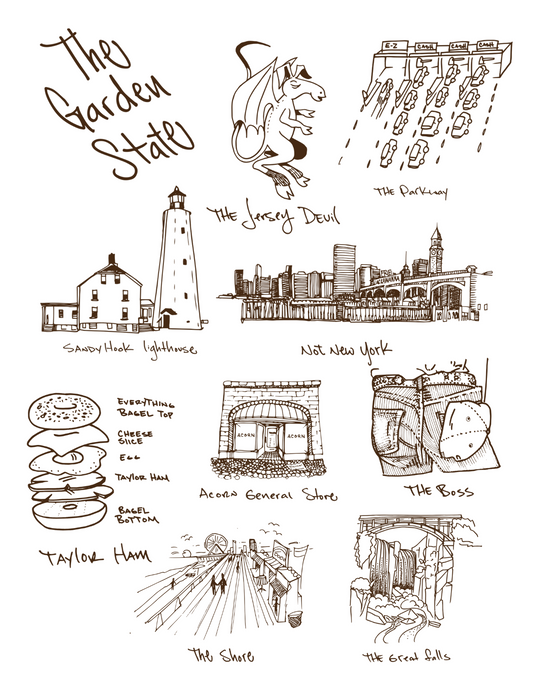 The
Garden
State
E-Z
CASH
CASH
CASH
THE Jersey Devil
THE Parkway
SANDY Hook lighthouse
Not New York
EVERYTHING
BAGEL TOP
CHEESE
SLICE
EGG
TAYLOR HAM
BAGEL
BOTTOM
TAYLOR HAM
ACORN
ACORN
Acorn General Store
THE BOSS
The Shore
THE Great falls